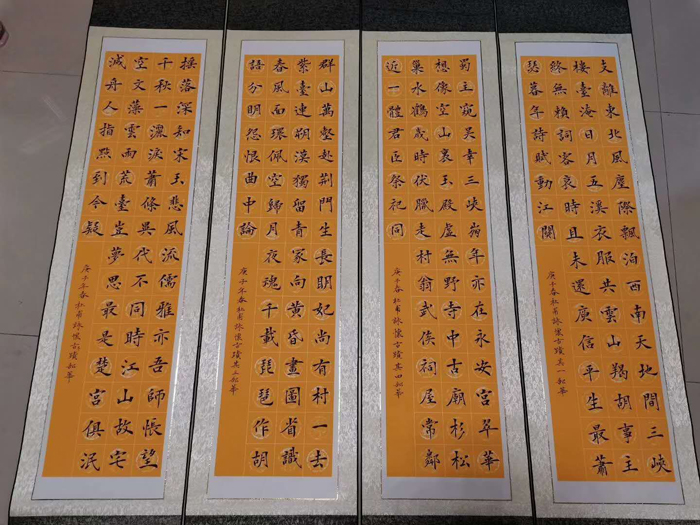 支離東北風塵際飄泊西南天地間三峽
樓臺淹日月五溪衣服共雲山羯胡事主
終無賴詞客哀時且未還庾信平生最蕭
瑟暮年詩賦動江關
庚子春杜甫詠懷古蹟其一如華
蜀主窺吳幸三峽崩年亦在永安宮翠華
想像空山裏玉殿虛無野寺中古廟杉松
巢水鶴歲時伏臘走村翁武侯祠屋常鄰
近一體君臣祭祀同
庚子春杜甫詠懷古蹟其四如華
群山萬壑赴荊門生長明妃尚有村一去
紫臺連朔漠獨留青冢向黃昏畫圖省識
春風面環佩空歸月夜魂千載琵琶作胡
語分明怨恨曲中論
庚子年春杜甫詠懷古蹟其三如華
搖落深知宋玉悲風流儒雅亦吾師悵望
千秋一灑淚蕭條異代不同時江山故宅
空文藻雲雨荒臺豈夢思最是楚宮俱泯
滅舟人指點到今疑
庚子年春杜甫詠懷古蹟如華